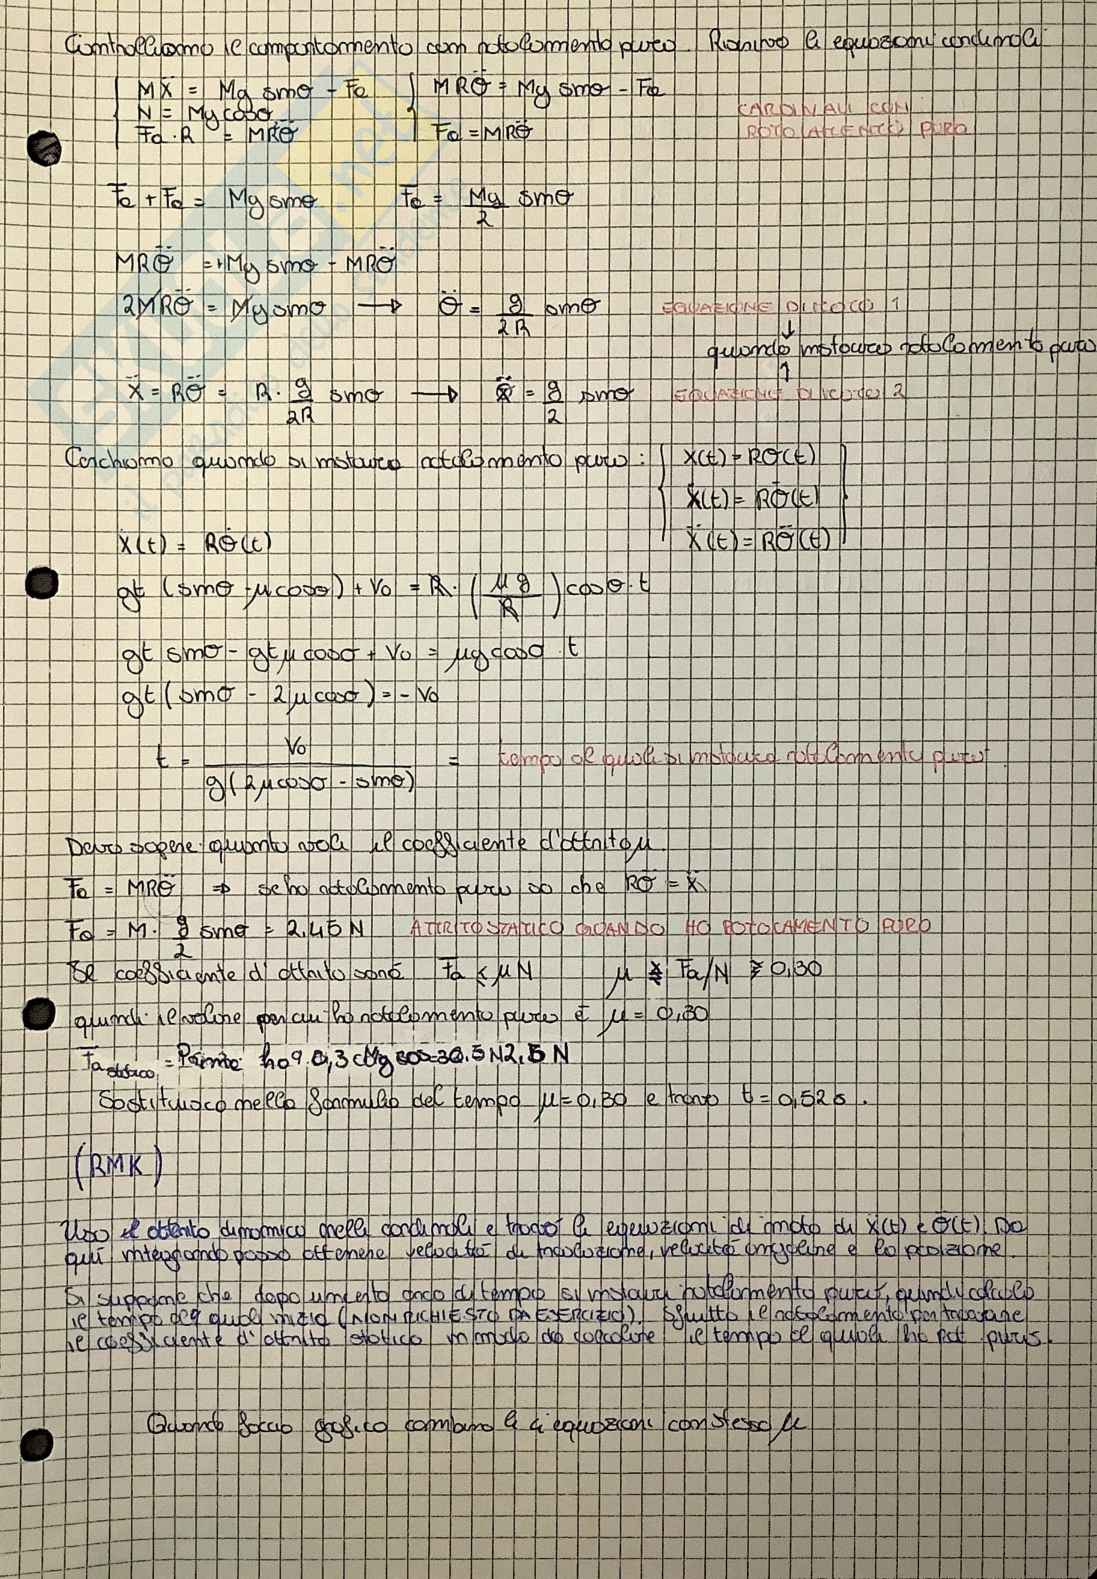 Controlliamo il comportamento con rotolamento puro. Riscrivo le equazioni cardinali
MẌ = Mg sinθ - Fa
MRθ̈ = Mg sinθ - Fa
N = Mg cosθ
CARDINALI CON
Fa·R = MR²θ̈
Fa = MRθ̈
ROTOLAMENTO PURO
Fa + Fa = Mg sinθ    Fa = Mg/2 sinθ
MRθ̈ = +Mg sinθ - MRθ̈
2MRθ̈ = Mg sinθ → θ̈ = g/2R sinθ    EQUAZIONE DI MOTO 1
quando instauro rotolamento puro
Ẍ = Rθ̈ = R · g/2R sinθ → Ẍ = g/2 sinθ    EQUAZIONE DI MOTO 2
Cerchiamo quando si instaura rotolamento puro:
X(t) = Rθ(t)
Ẋ(t) = Rθ̇(t)
Ẍ(t) = Rθ̈(t)
Ẋ(t) = Rθ̇(t)
gt (sinθ - μcosθ) + V0 = R · (μg/R) cosθ · t
gt sinθ - gt μcosθ + V0 = μg cosθ · t
gt (sinθ - 2μcosθ) = - V0
t = V0 / g(2μcosθ - sinθ) = tempo al quale si instaura rotolamento puro
Devo sapere quanto vale il coefficiente d'attrito μ
Fa = MRθ̈ ⇒ se ho rotolamento puro so che Rθ̈ = Ẍ
Fa = M · g/2 sinθ = 2,45N    ATTRITO STATICO QUANDO HO ROTOLAMENTO PURO
Se coefficiente d'attrito sarà Fa ≤ μN    μ ≥ Fa/N ≥ 0,30
quindi il valore per cui ho rotolamento puro è μ = 0,30
Fa statico =
Sostituisco nella formula del tempo μ = 0,30 e trovo t = 0,52s.
(RMK)
Uso il attrito dinamico nelle cardinali e trovo le equazioni di moto di Ẍ(t) e θ̈(t). Da
qui integrando posso ottenere velocità di traslazione, velocità angolare e la posizione.
Si suppone che dopo un certo arco di tempo si instaura rotolamento puro, quindi calcolo
il tempo per quale inizia (NON RICHIESTO DA ESERCIZIO). Sfrutto il rotolamento per trovare
il coefficiente d'attrito statico in modo da calcolare il tempo al quale ho rot puro.
Quando faccio grafico combino le 2 equazioni con stesso μ